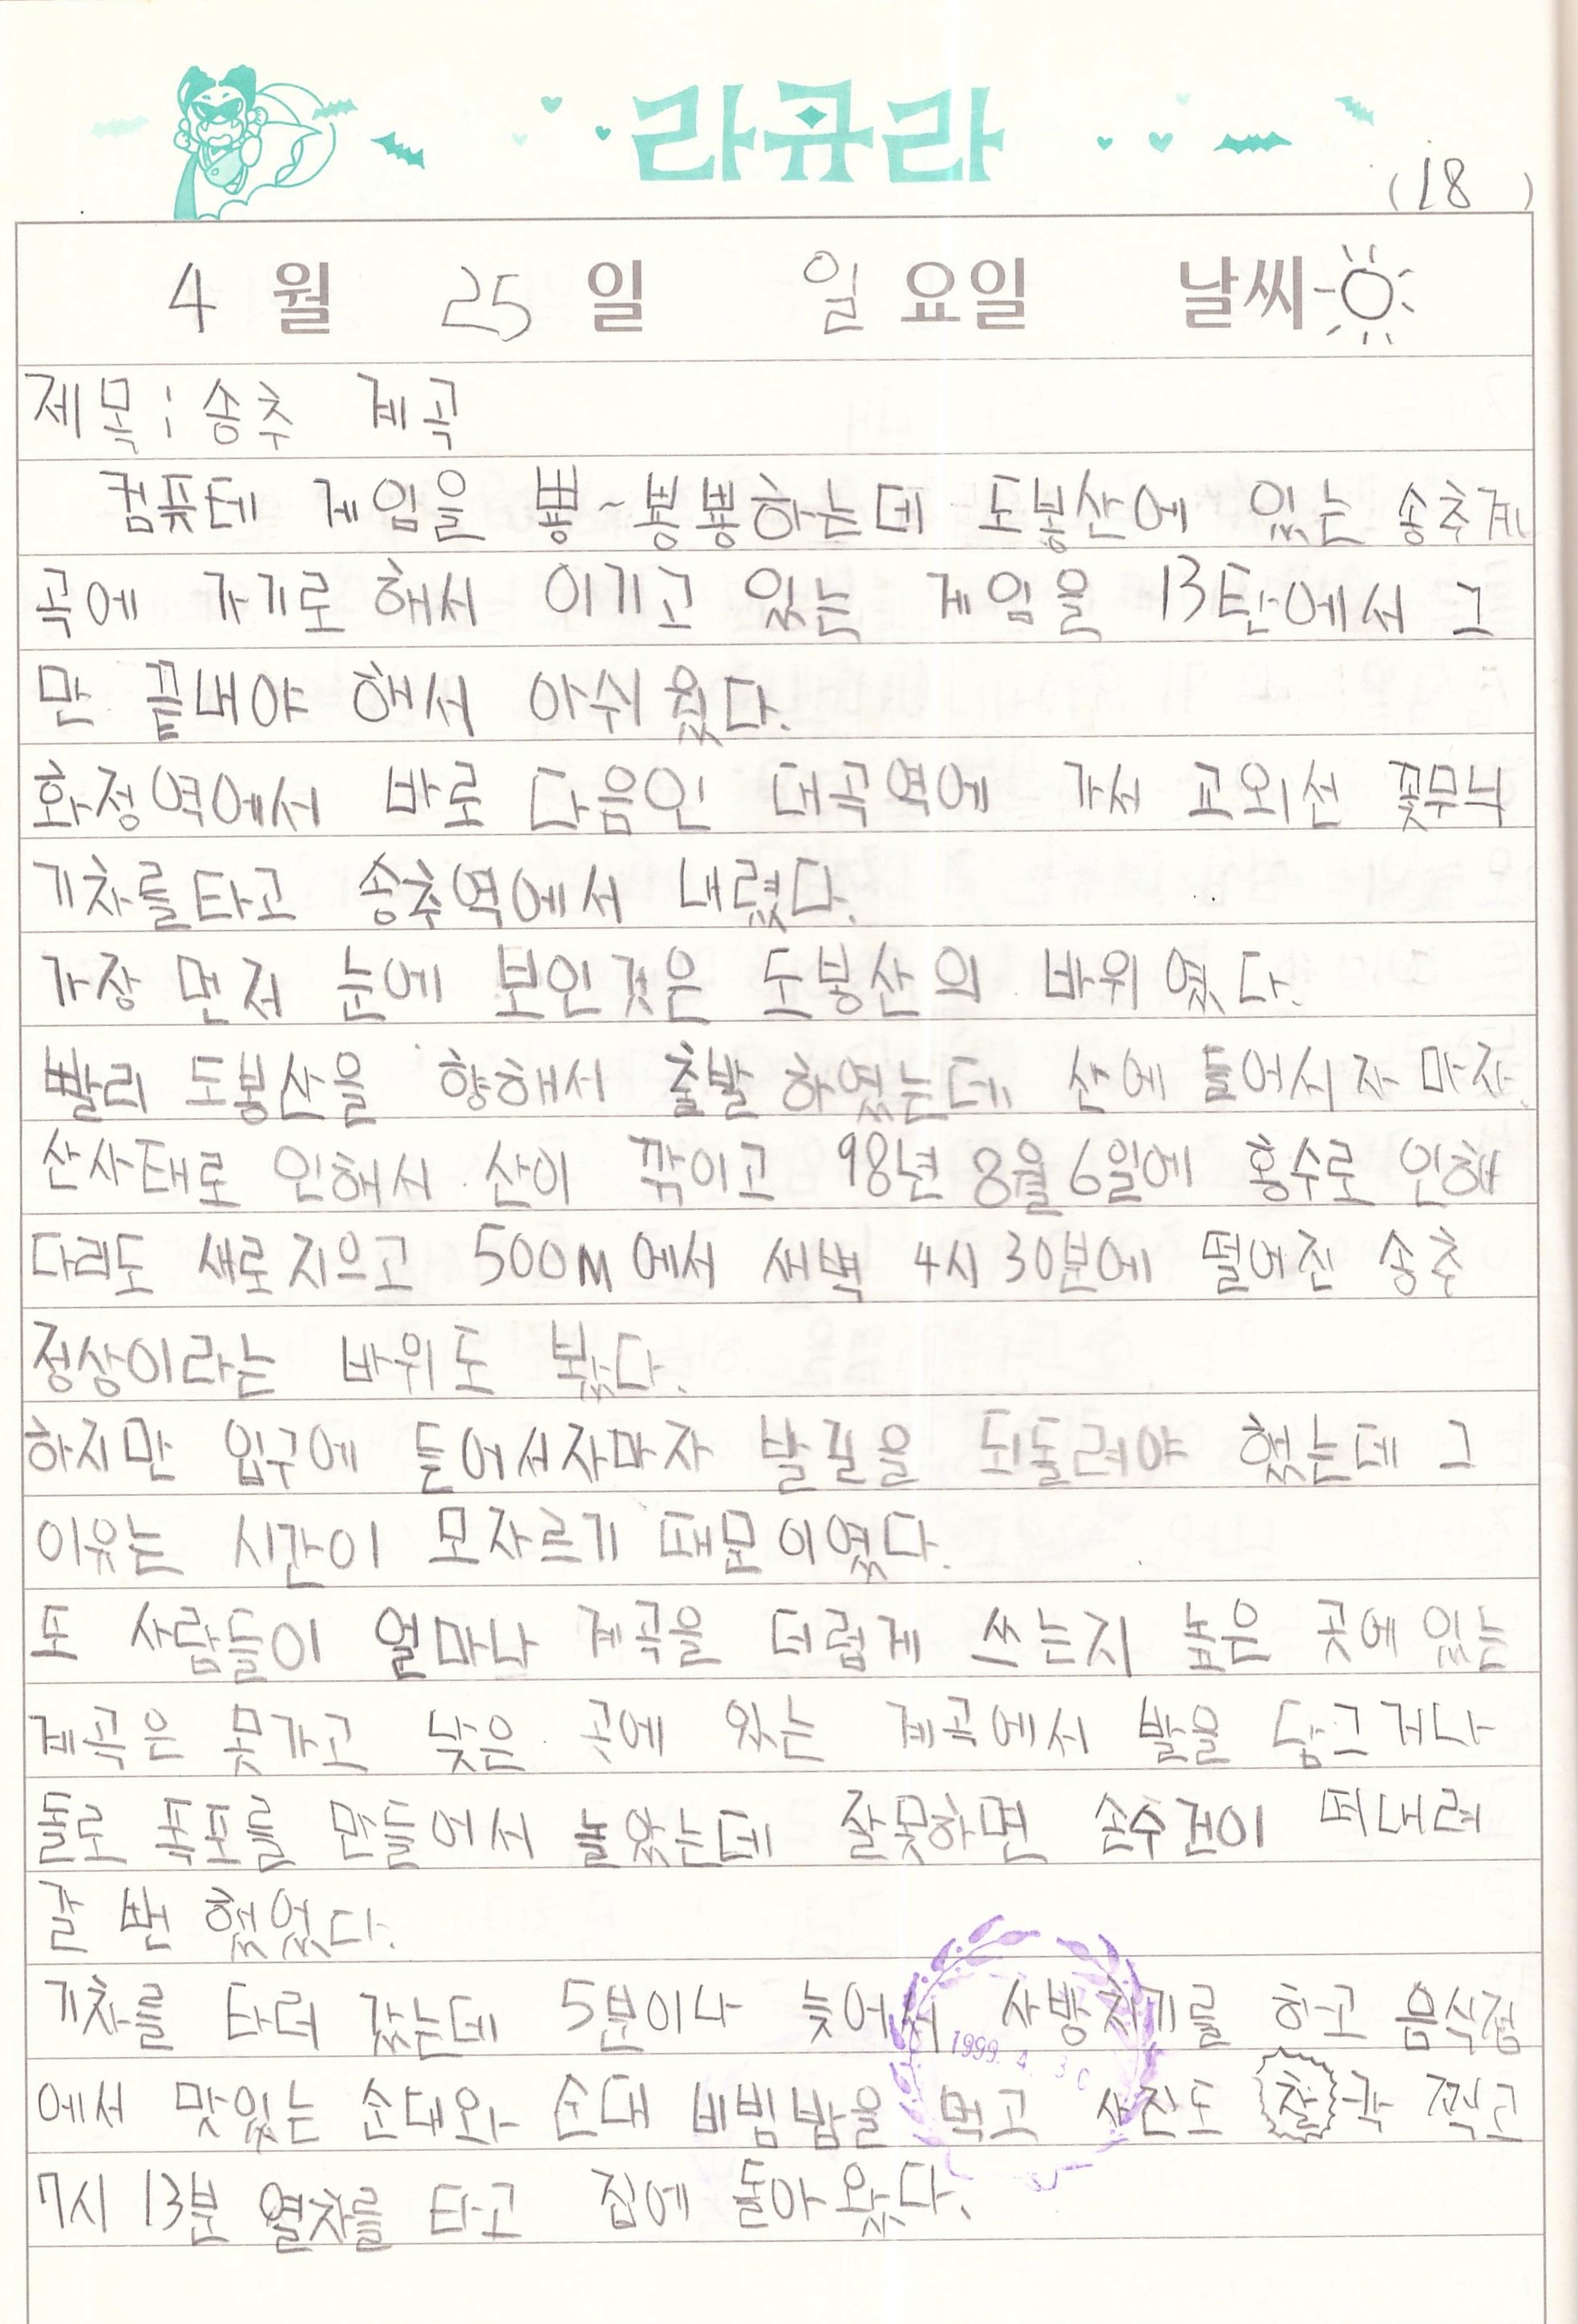 라큐라
(18)
4월 25일 일요일 날씨
제목: 송추 계곡
컴퓨테 게임을 뿅~뿅뿅하는데 도봉산에 있는 송추계
곡에 가기로 해서 이기고 있는 게임을 13탄에서 그
만 끝내야 해서 아쉬웠다.
화정역에서 바로 다음인 대곡역에 가서 교외선 꽃무늬
기차를타고 송추역에서 내렸다.
가장 먼저 눈에 보인것은 도봉산의 바위였다.
빨리 도봉산을 향해서 출발하였는데 산에 들어서자마자
산사태로 인해서 산이 깎이고 98년 8월 6일에 홍수로 인해
다리도 새로지으고 500M에서 새벽 4시 30분에 떨어진 송추
정상이라는 바위도 봤다.
하지만 입구에 들어서자마자 발길을 되돌려야 했는데 그
이유는 시간이 모자르기 때문이였다.
또 사람들이 얼마나 계곡을 더럽게 쓰는지 높은 곳에 있는
계곡은 못가고 낮은 곳에 있는 계곡에서 발을 담그거나
돌로 폭포를 만들어서 놀았는데 잘못하면 손수건이 떠내려
갈 뻔 했었다.
기차를 타러 갔는데 5분이나 늦어서 사방치기를 하고 음식점
에서 맛있는 순대와 순대 비빔밥을 먹고 사진도 찰칵 찍고
1999. 4. 30
7시 13분 열차를 타고 집에 돌아왔다.